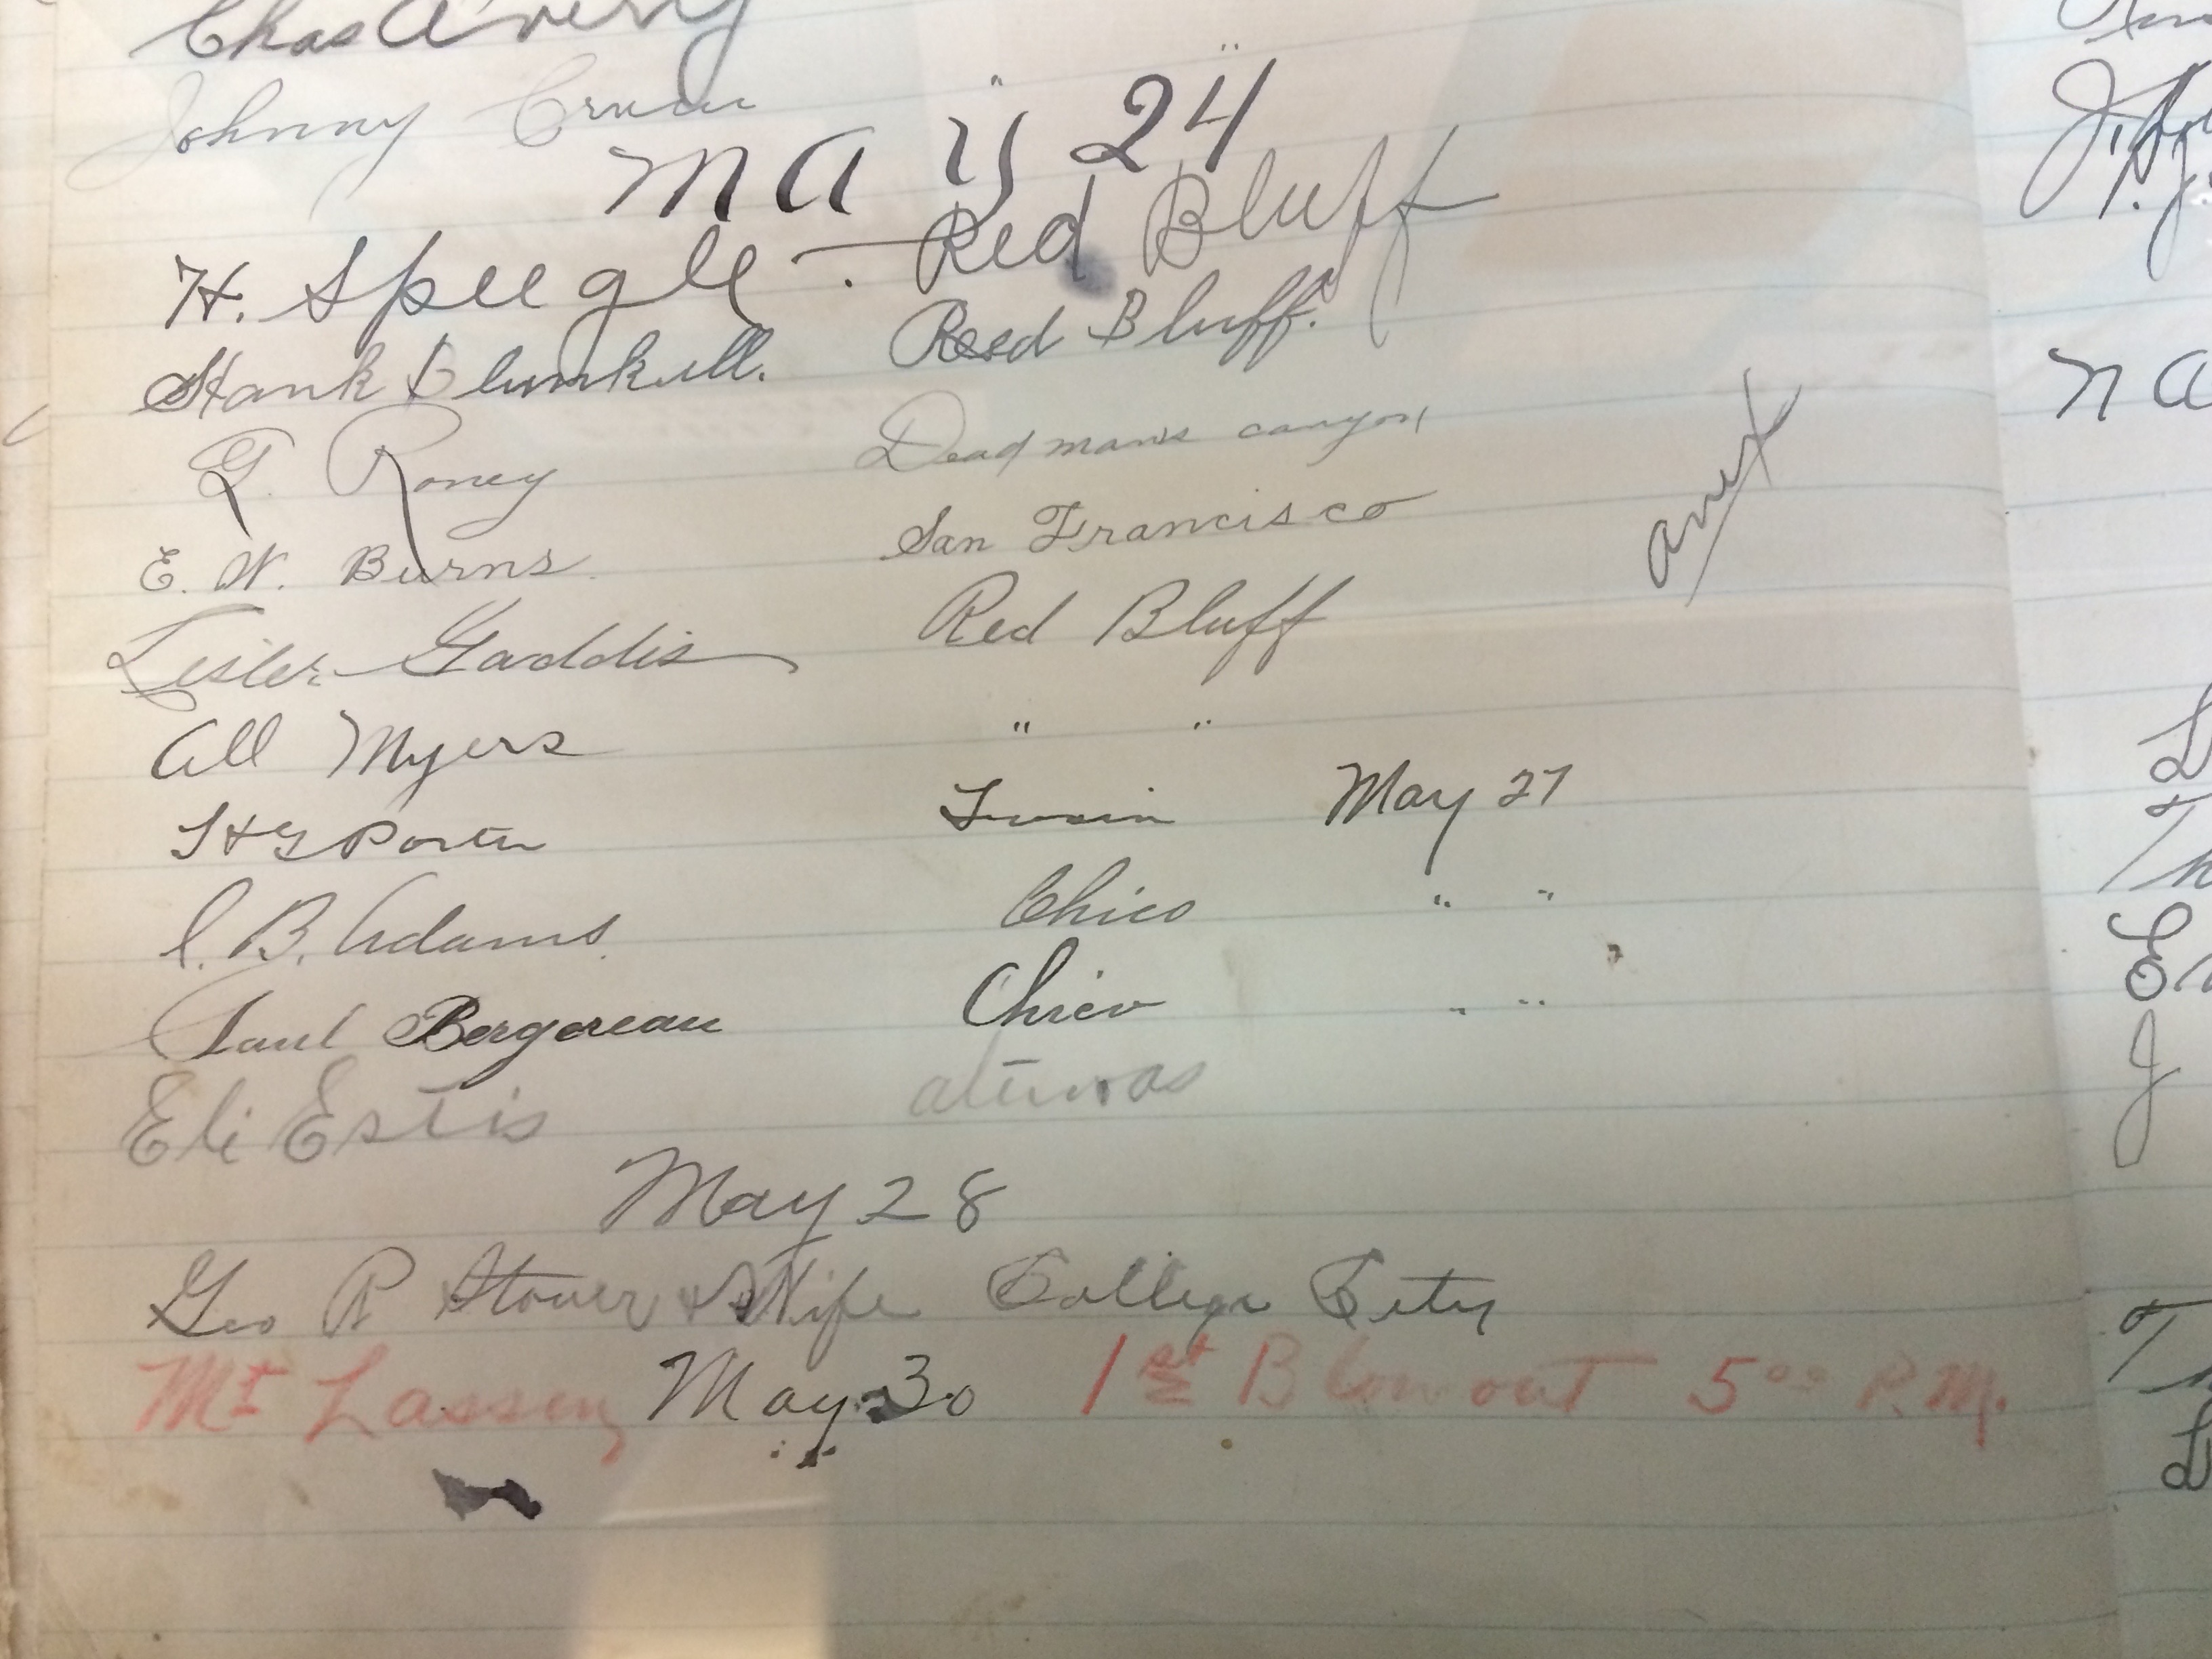 Chas Avery
Johnny
May 24
H. Speegle - Red Bluff
Hank Red Bluff.
G. Roney Deadmans canyon
E. W. Burns. San Francisco
Lester Gaddis Red Bluff
All Myers " "
Porter May 27
C. B. Adams. Chico " "
Paul Bergereau Chico " "
Eli Estis
May 28
Geo R Stover & Wife College City
Mt Lassen May 30 1st Blow out 5 00 P.M.